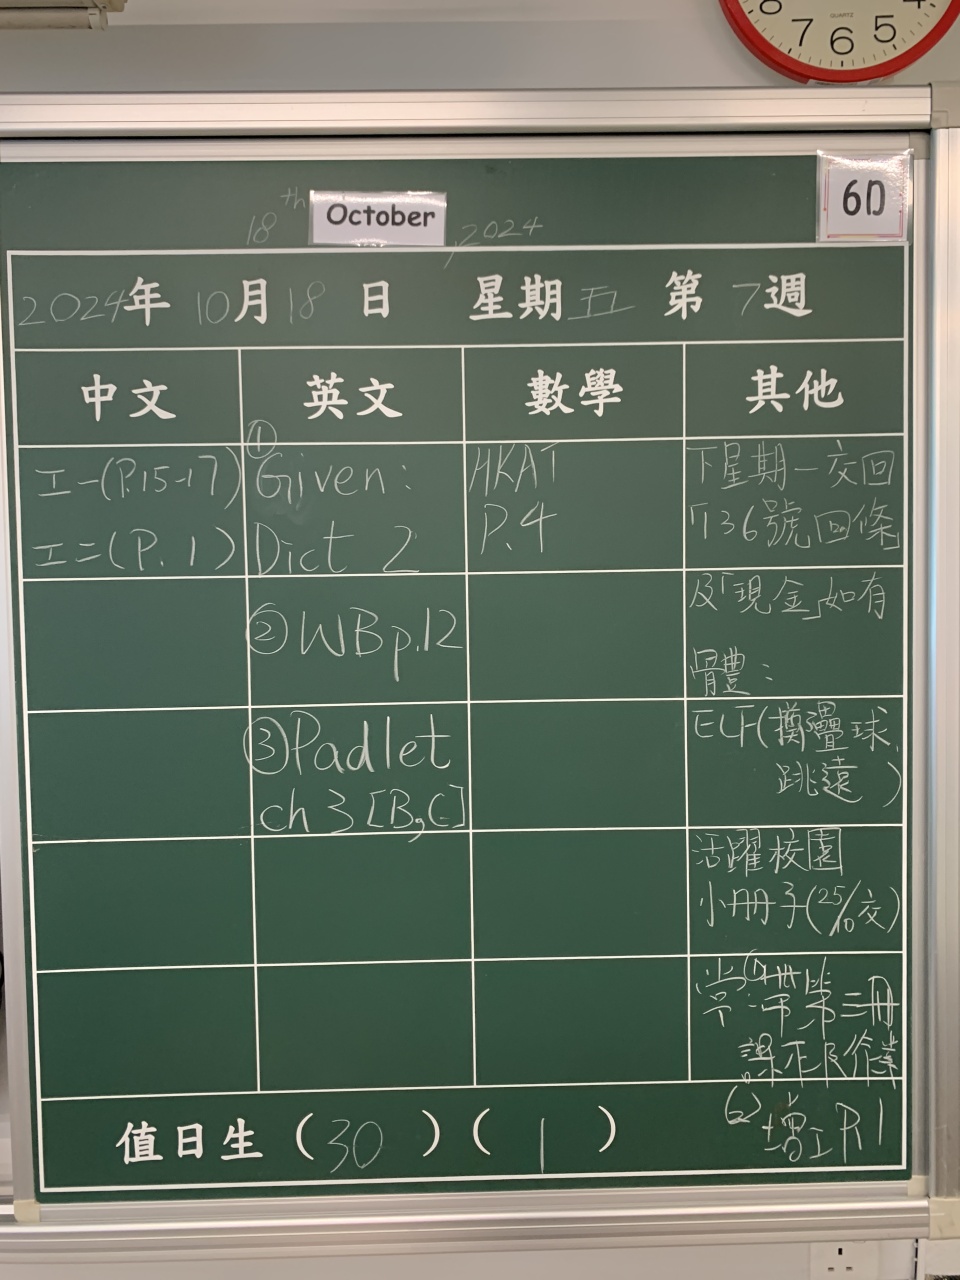 8 4
7 6 5
QUARTZ
6D
18th October, 2024
2024年10月18日 星期五 第7週
中文 英文 數學 其他
工一(P.15-17)
工二(P.1)
①
Given:
Dict 2
②WBp.12
③Padlet
ch 3 [B,C]
HKAT
P.4
下星期一交回
「136號回條」
及「現金」如有
體:
ELF(擲壘球、
跳遠)
活躍校園
小冊子(25/10交)
(1)帶第三冊
(2)增工P.1
值日生(30)(1)